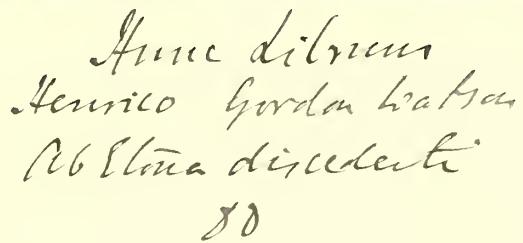 Hunc Librum
Henrico Gordon Watson
Ab Etona discedenti
DD